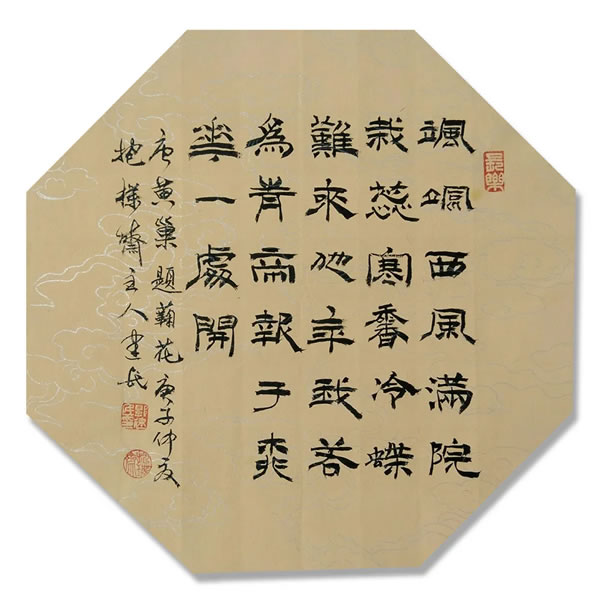 颯颯西風滿院
栽蕊寒香冷蝶
難來他年我若
為青帝報于桃
華一處開
唐黄巢題菊花庚子仲夏
抱樸齋主人建民
長樂